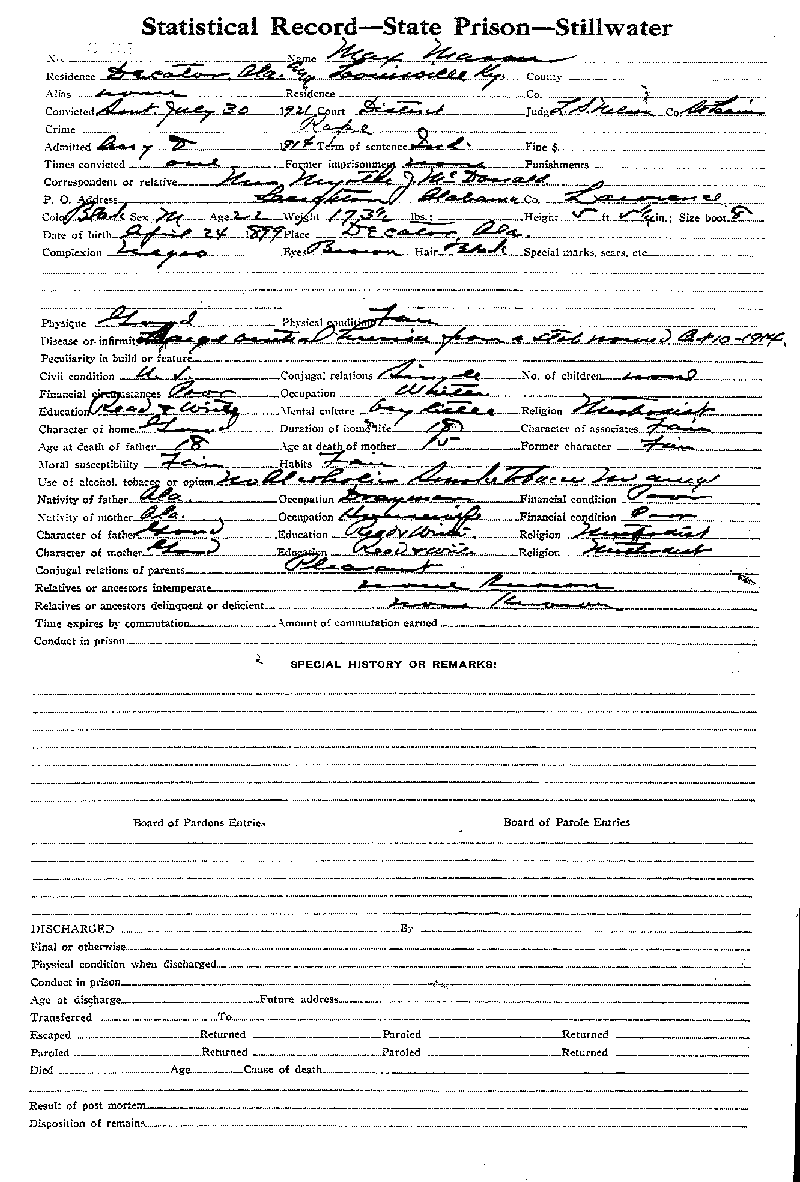 Statistical Record—State Prison—Stillwater
No. Name Max Mason
Residence Decator, Ala. Louisville Ky. County
Alias none Residence Co.
Convicted Sent. July 30 1921 Court District Judge Co.
Crime Rape
Admitted Aug 191 Term of sentence Ind. Fine $
Times convicted one Former imprisonment none Punishments
Correspondent or relative McDonald
P. O. Address Alabama Co. Lawrence
Color Black Sex M Age 22 Weight 173½ lbs.; Height 5 ft. in.; Size boot 8
Date of birth April 24 1899 Place Decator, Ala.
Complexion Negro Eyes Brown Hair Black Special marks, scars, etc.
Physique Good Physical condition Fair
Disease or infirmity from a 1914.
Peculiarity in build or feature
Civil condition U. S. Conjugal relations Single No. of children none
Financial circumstances Poor Occupation
Education Read & Write Mental culture very little Religion Methodist
Character of home Good Duration of home life 18 Character of associates Fair
Age at death of father 18 Age at death of mother 15 Former character Fair
Moral susceptibility Fair Habits Fair
Use of alcohol, tobacco or opium No Alcoholic Smoke Tobacco
Nativity of father Ala. Occupation Drayman Financial condition Poor
Nativity of mother Ala. Occupation Housewife Financial condition Poor
Character of father Good Education Read & Write Religion Methodist
Character of mother Good Education Read & Write Religion Methodist
Conjugal relations of parents Pleasant
Relatives or ancestors intemperate none Known
Relatives or ancestors delinquent or deficient none Known
Time expires by commutation Amount of commutation earned
Conduct in prison
SPECIAL HISTORY OR REMARKS:
Board of Pardons Entries Board of Parole Entries
DISCHARGED By
Final or otherwise
Physical condition when discharged
Conduct in prison
Age at discharge Future address
Transferred To
Escaped Returned Paroled Returned
Paroled Returned Paroled Returned
Died Age Cause of death
Result of post mortem
Disposition of remains